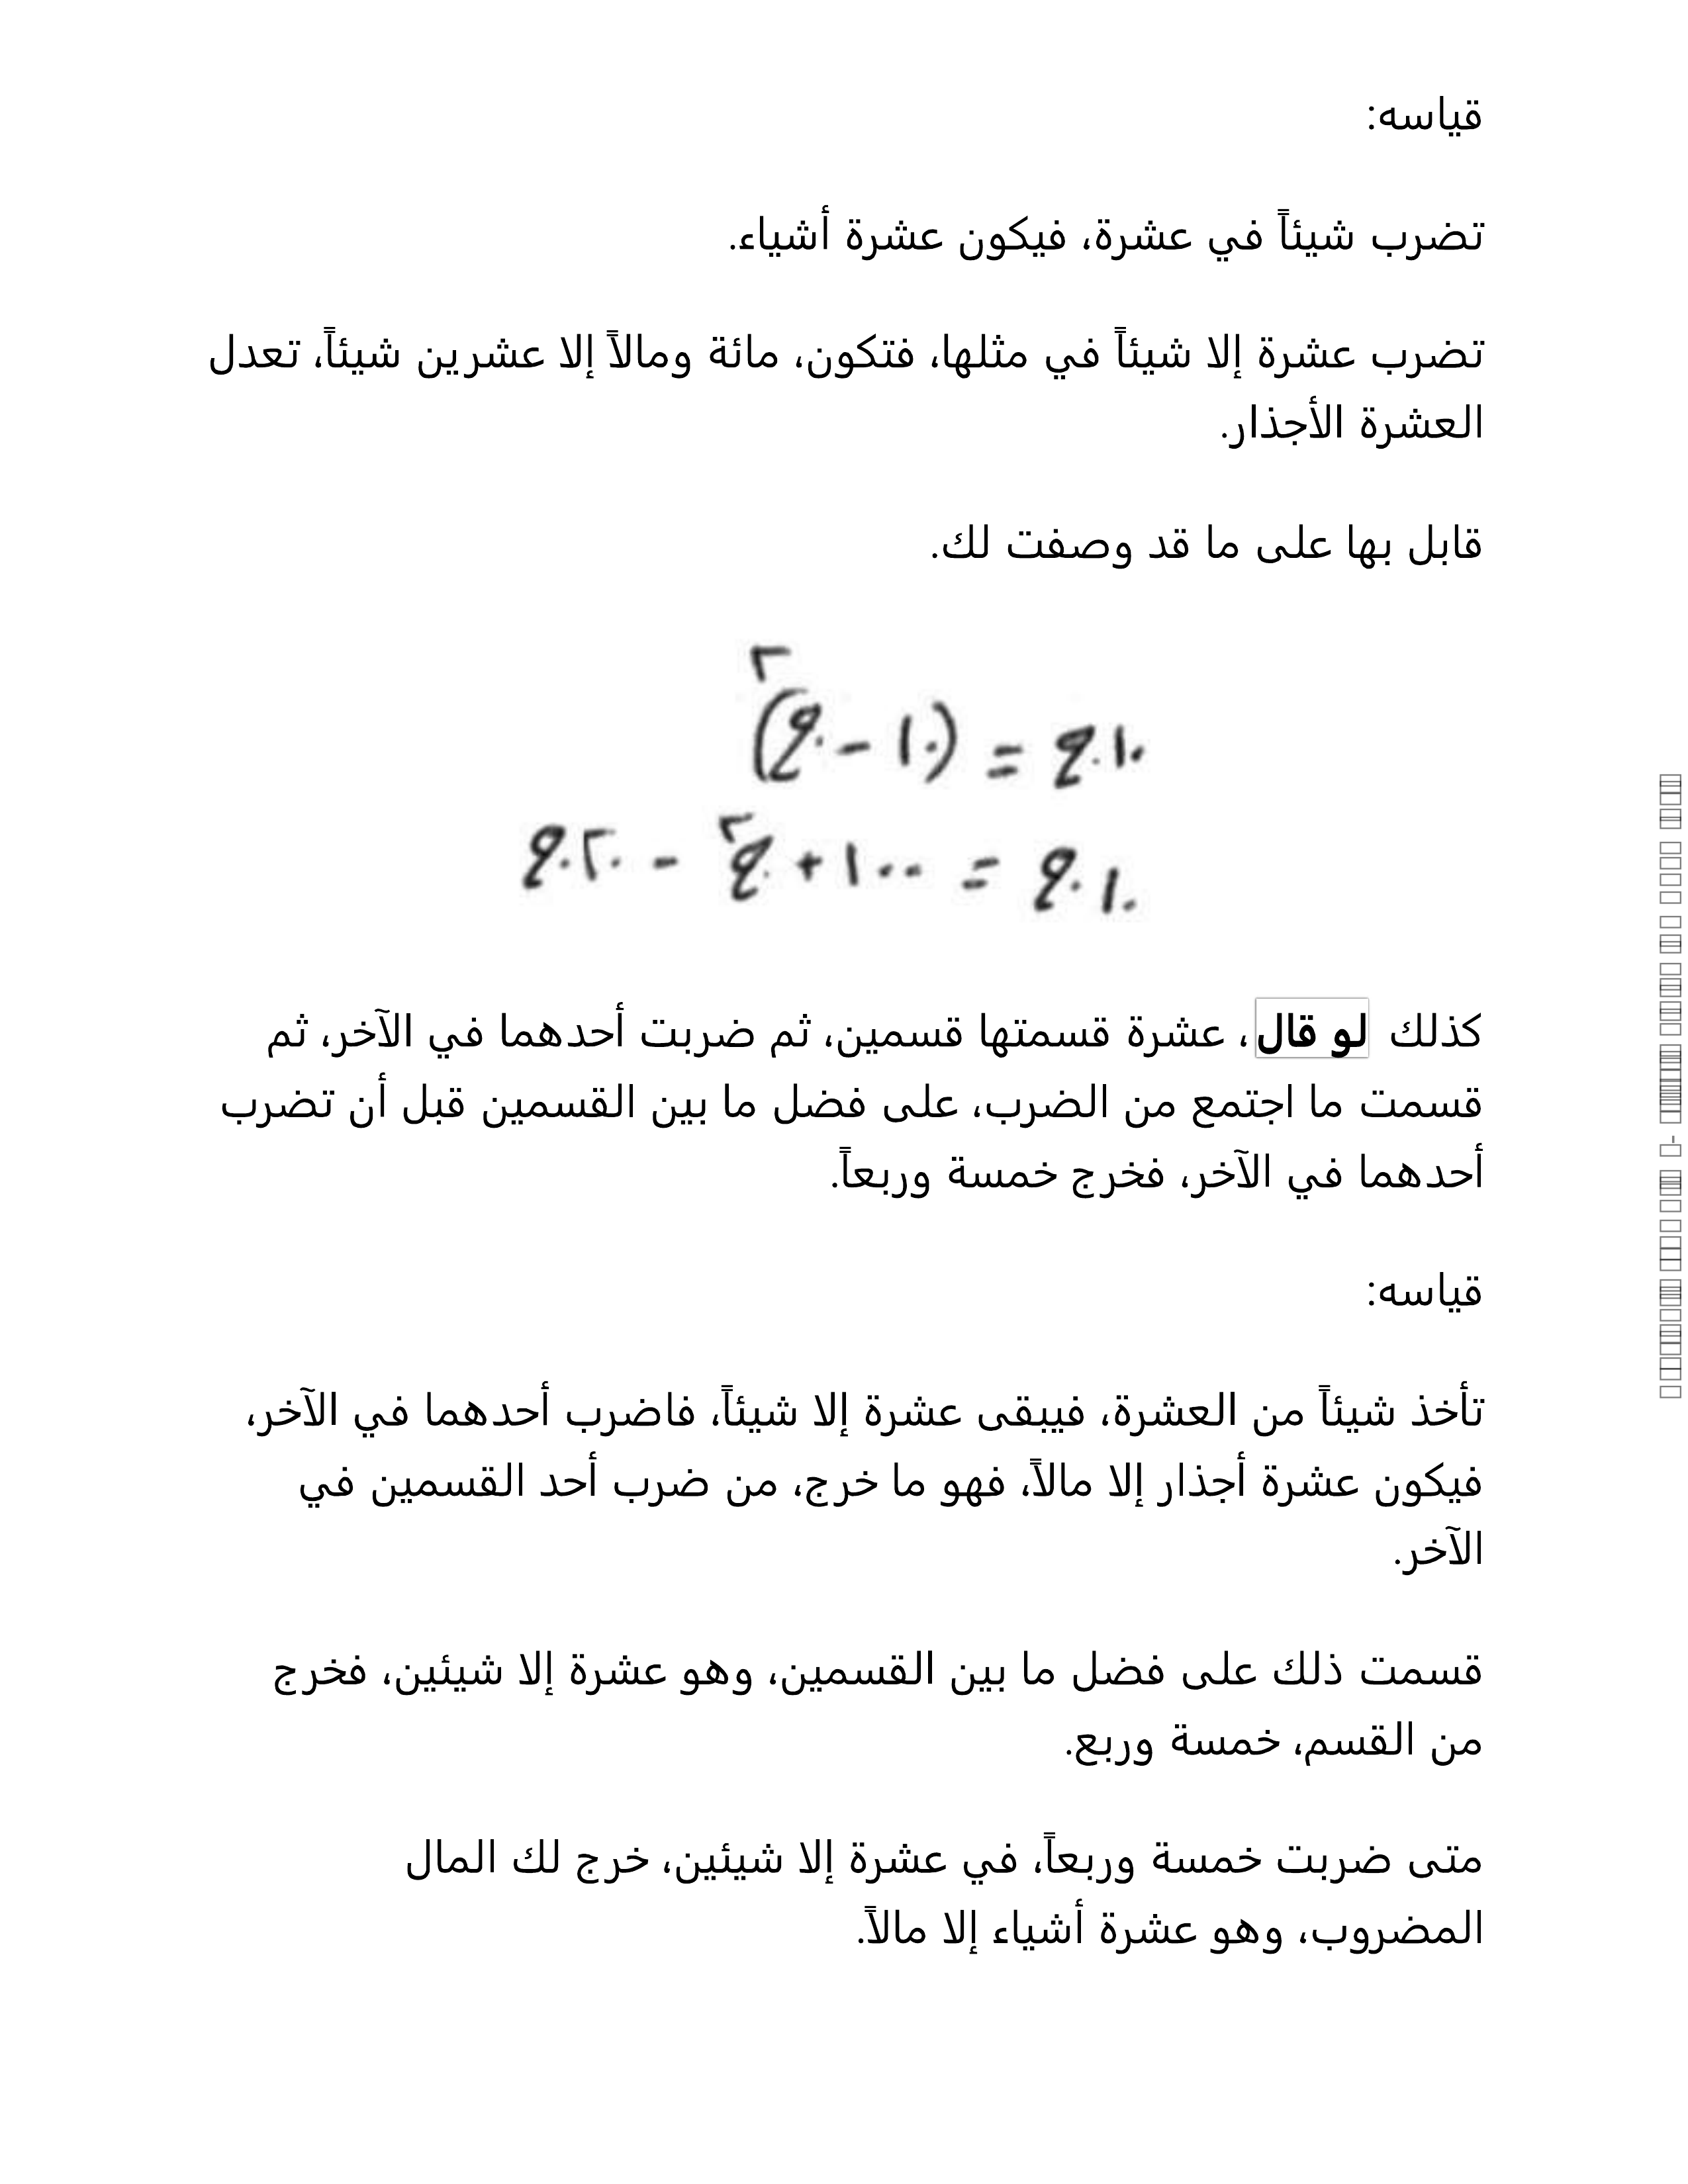 قياسه:
تضرب شيئاً في عشرة، فيكون عشرة أشياء.
تضرب عشرة إلا شيئاً في مثلها، فتكون، مائة ومالاً إلا عشرين شيئاً، تعدل
العشرة الأجذار.
قابل بها على ما قد وصفت لك.
١٠ج = (١٠ - ج)٢
١٠ج = ١٠٠ + ج٢ - ٢٠ج
كذلك لو قال، عشرة قسمتها قسمين، ثم ضربت أحدهما في الآخر، ثم
قسمت ما اجتمع من الضرب، على فضل ما بين القسمين قبل أن تضرب
أحدهما في الآخر، فخرج خمسة وربعاً.
قياسه:
تأخذ شيئاً من العشرة، فيبقى عشرة إلا شيئاً، فاضرب أحدهما في الآخر،
فيكون عشرة أجذار إلا مالاً، فهو ما خرج، من ضرب أحد القسمين في
الآخر.
قسمت ذلك على فضل ما بين القسمين، وهو عشرة إلا شيئين، فخرج
من القسم، خمسة وربع.
متى ضربت خمسة وربعاً، في عشرة إلا شيئين، خرج لك المال
المضروب، وهو عشرة أشياء إلا مالاً.